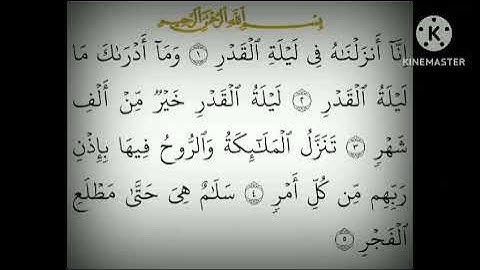 بِسْمِ ٱللَّهِ ٱلرَّحْمَٰنِ ٱلرَّحِيمِ
إِنَّآ أَنزَلْنَٰهُ فِى لَيْلَةِ ٱلْقَدْرِ ١ وَمَآ أَدْرَىٰكَ مَا
لَيْلَةُ ٱلْقَدْرِ ٢ لَيْلَةُ ٱلْقَدْرِ خَيْرٌ مِّنْ أَلْفِ
شَهْرٍ ٣ تَنَزَّلُ ٱلْمَلَٰٓئِكَةُ وَٱلرُّوحُ فِيهَا بِإِذْنِ
رَبِّهِم مِّن كُلِّ أَمْرٍ ٤ سَلَٰمٌ هِىَ حَتَّىٰ مَطْلَعِ
ٱلْفَجْرِ ٥
KINEMASTER